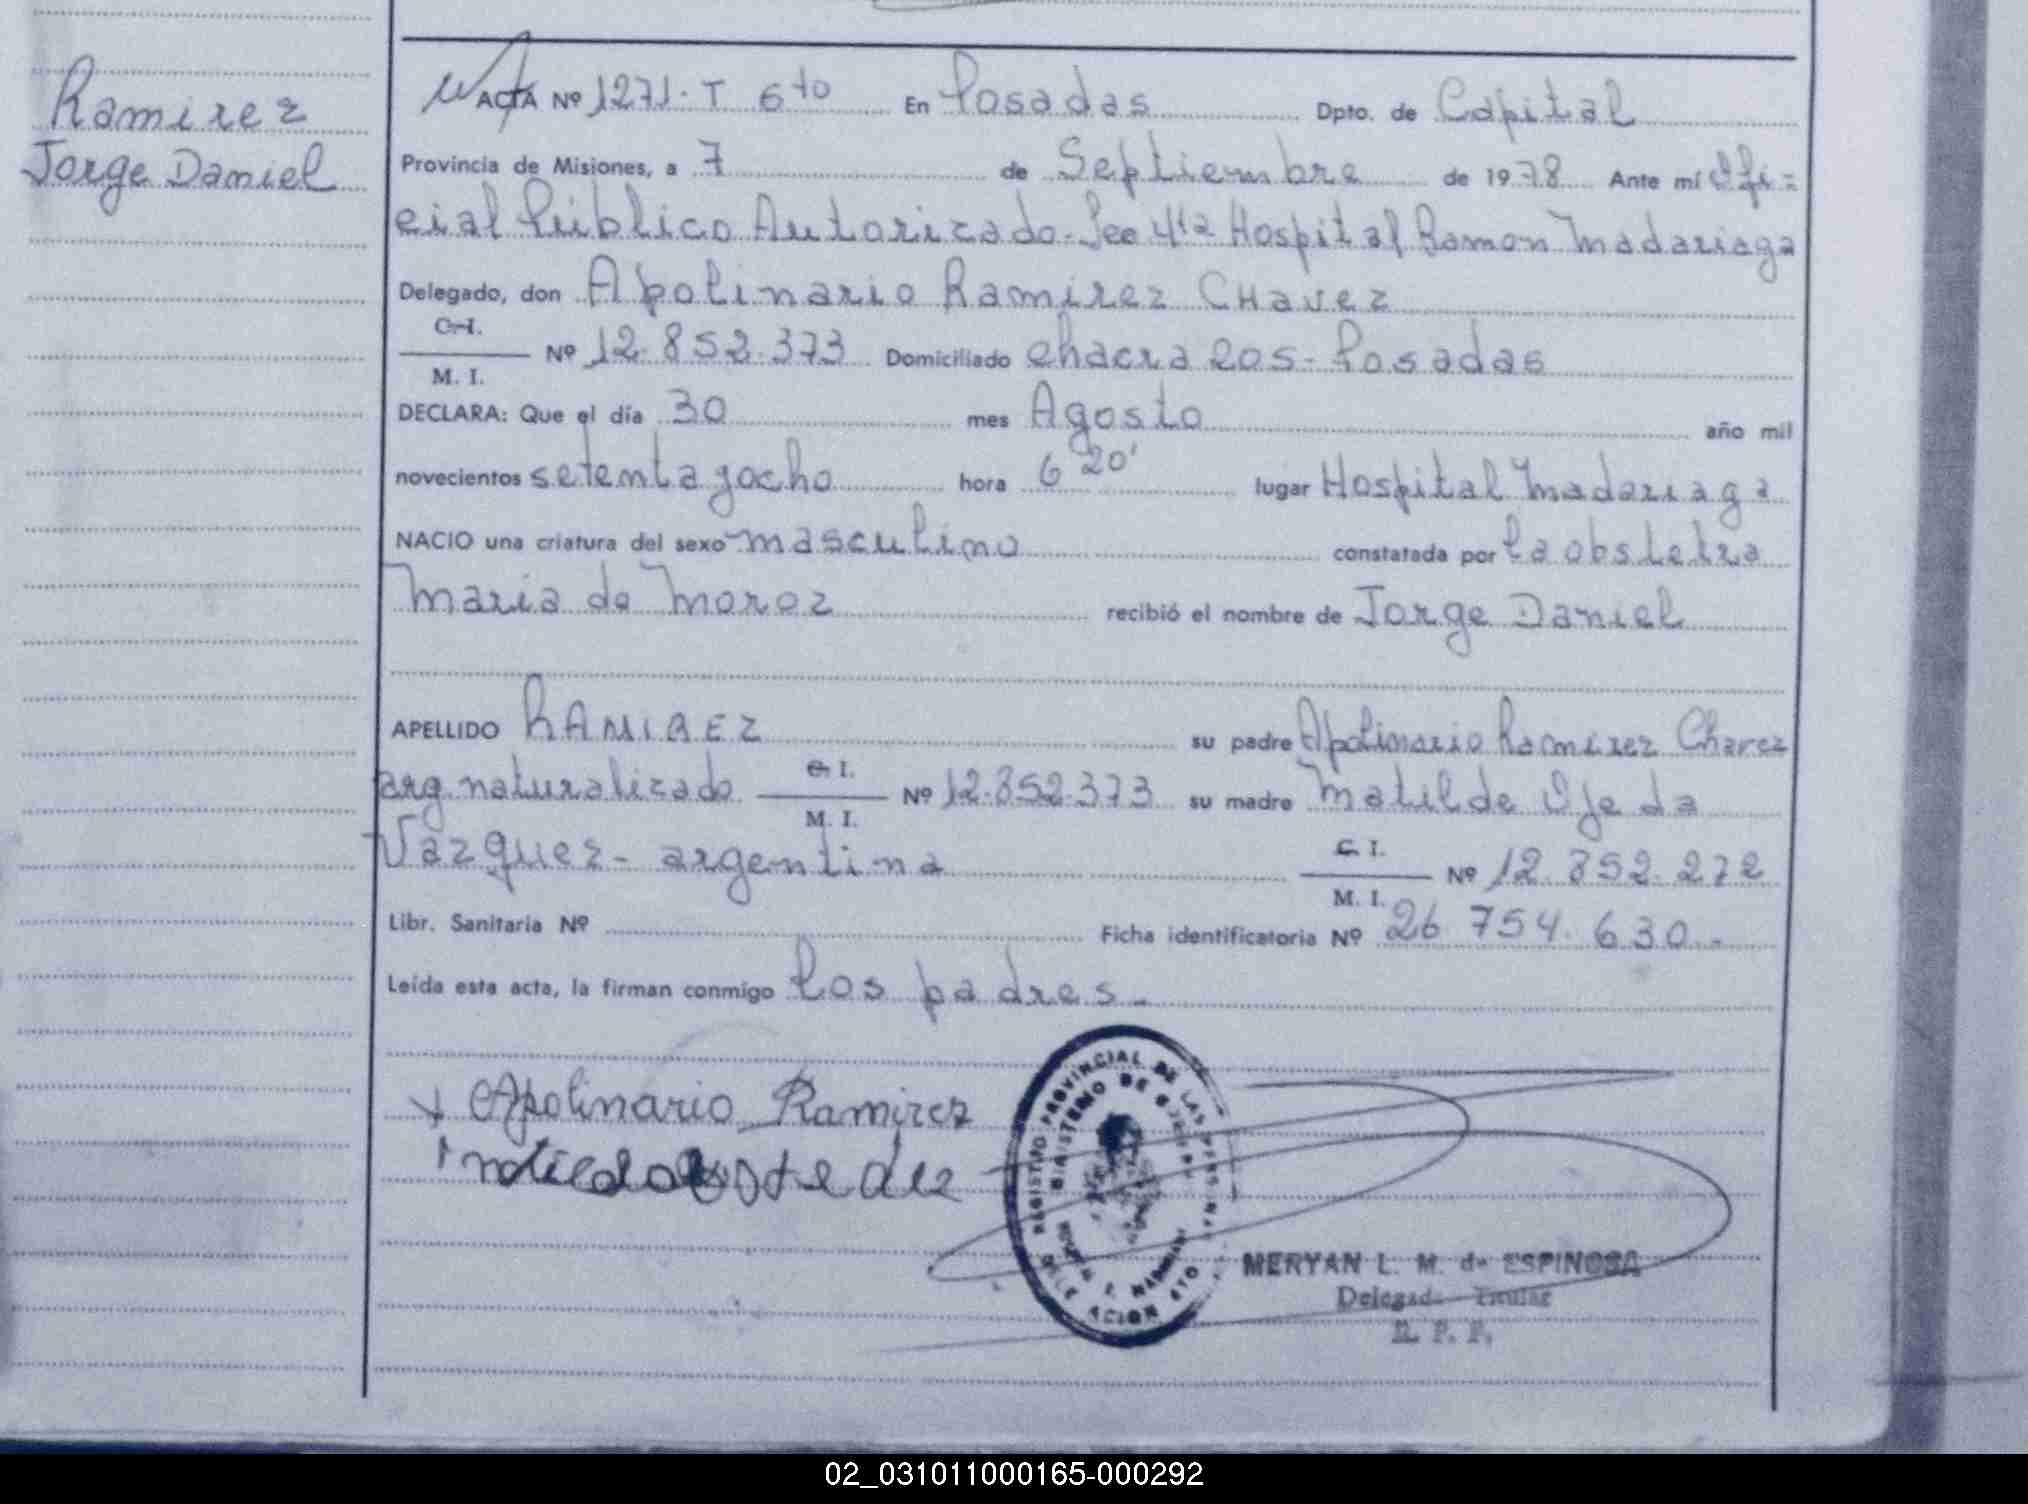 Ramirez
Jorge Daniel
ACTA Nº 1271. T 6to En Posadas Dpto. de Capital
Provincia de Misiones, a 7 de Septiembre de 1978 Ante mí Ofi=
cial Público Autorizado. Sec 4ta Hospital Ramon Madariaga
Delegado, don Apolinario Ramirez Chavez
C.I.
M. I. Nº 12.852.373 Domiciliado chacra 205- Posadas
DECLARA: Que el día 30 mes Agosto año mil
novecientos setenta y ocho hora 6 20' lugar Hospital Madariaga
NACIO una criatura del sexo masculino constatada por la obstetra
Maria de Moroz recibió el nombre de Jorge Daniel
APELLIDO RAMIREZ su padre Apolinario Ramirez Chavez
arg. naturalizado C.I. M. I. Nº 12.852.373 su madre Matilde Ojeda
Vazquez- argentina C.I. M. I. Nº 12.852.272
Libr. Sanitaria Nº Ficha identificatoria Nº 26 754. 630.-
Leída esta acta, la firman conmigo los padres.-
Apolinario Ramirez
REGISTRO PROVINCIAL DE LAS PERSONAS
MINISTERIO DE
MERYAN L. M. de ESPINOSA
Delegada Titular
R. P. P.
02_031011000165-000292